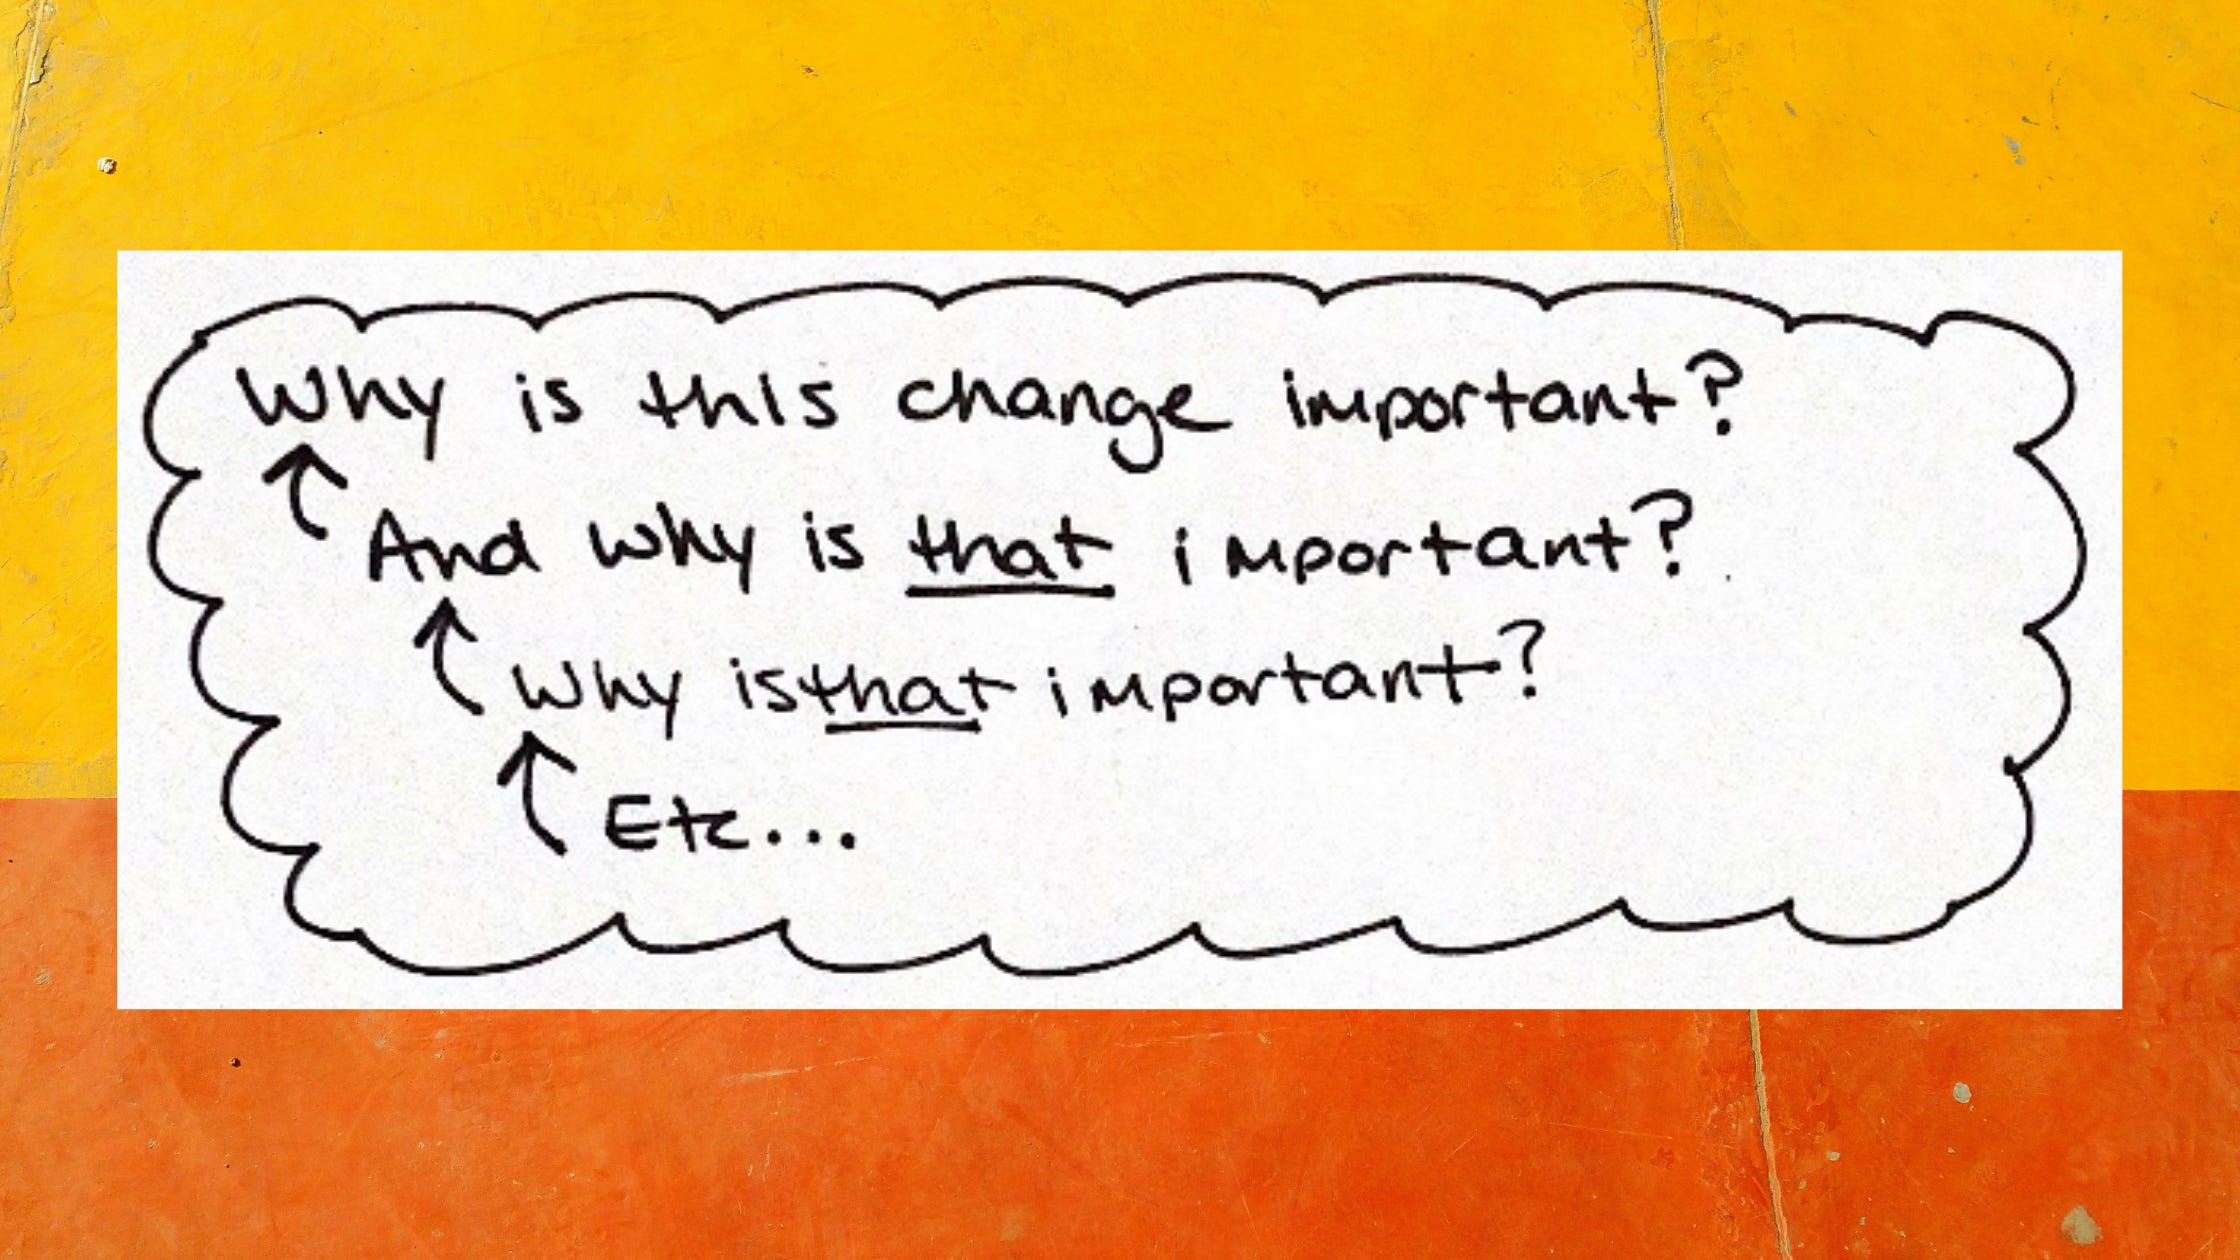 Why is this change important?
And why is that important?
Why is that important?
Etc...